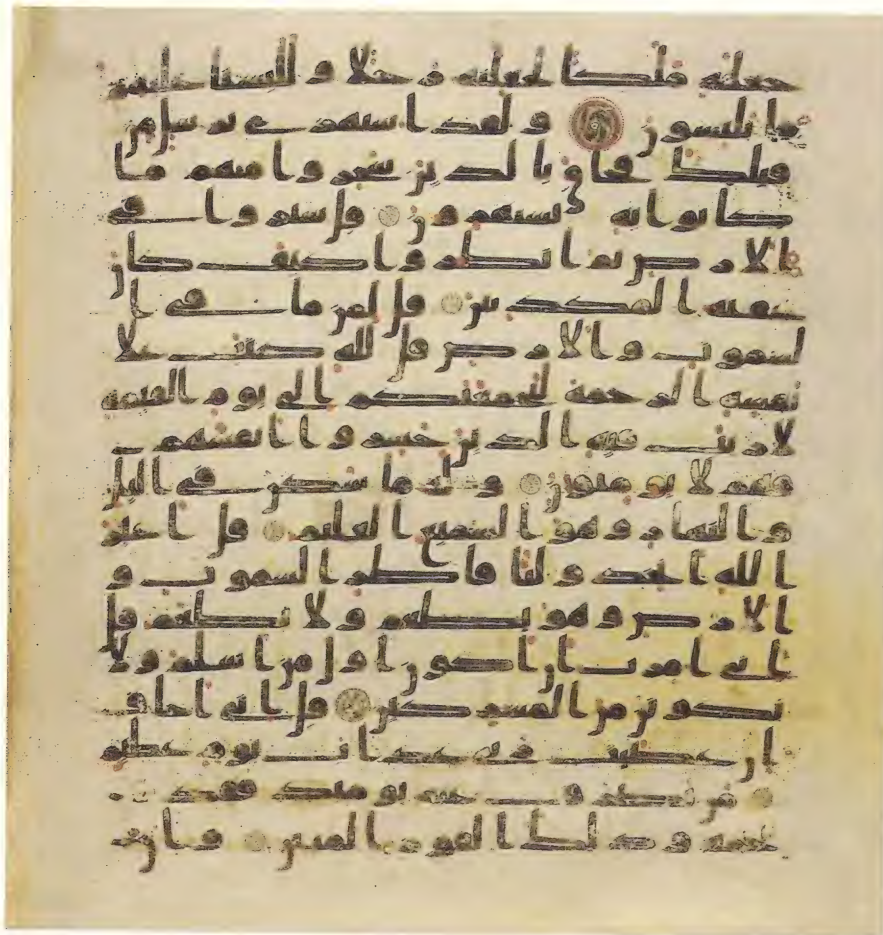 جعلنه ملكا لجعلنه رجلا وللبسنا عليهم
ما يلبسون ولقد استهزى برسل من
قبلك فحاق بالذين سخروا منهم ما
كانوا به يستهزون قل سيروا في
الارض ثم انظروا كيف كان
عقبة المكذبين قل لمن ما في ا
لسموت والارض قل لله كتب على
نفسه الرحمة ليجمعنكم الى يوم القيمة
لا ريب فيه الذين خسروا انفسهم
فهم لا يومنون وله ما سكن في اليل
والنهار وهو السميع العليم قل اغير
الله اتخذ وليا فاطر السموت و
الارض وهو يطعم ولا يطعم قل
اني امرت ان اكون اول من اسلم ولا
تكونن من المشركين قل اني اخاف
ان عصيت ربي عذاب يوم عظيم
من يصرف عنه يومئذ فقد ر
حمه وذلك الفوز المبين وان